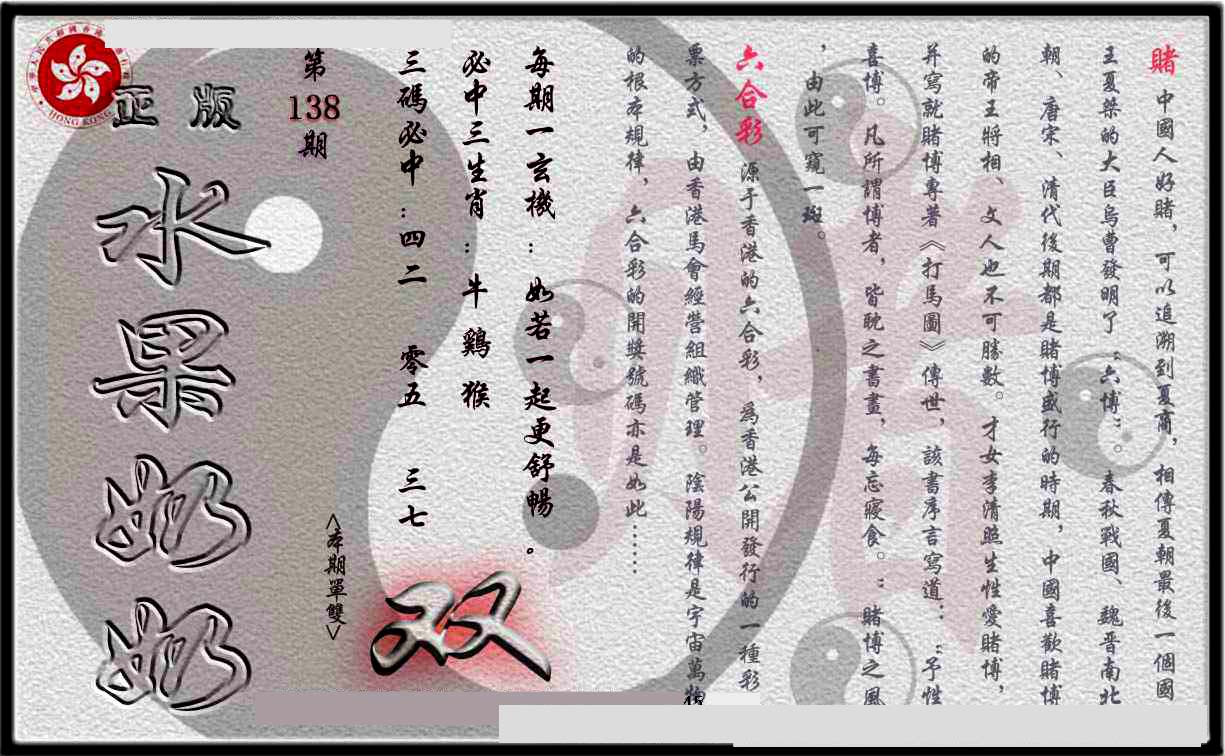 賭 中國人好賭，可以追溯到夏商，相傳夏朝最後一個國
王夏桀的大臣烏曹發明了“六博”。春秋戰國、魏晋南北
朝、唐宋、清代後期都是賭博盛行的時期，中國喜歡賭博
的帝王將相、文人也不可勝數。才女李清照生性愛賭博，
并寫就賭博專著《打馬圖》傳世，該書序言寫道：“予性
喜博。凡所謂博者，皆耽之書晝，每忘寢食。”賭博之風
，由此可窺一斑。
六合彩 源于香港的六合彩，為香港公開發行的一種彩
票方式，由香港馬會經營組織管理。陰陽規律是宇宙萬物
的根本規律，六合彩的開獎號碼亦是如此……
每期一玄機：如若一起更舒暢。
必中三生肖：牛 鷄 猴
三碼必中：四二 零五 三七
<本期單雙>
双
第
138
期
正版
水果奶奶
HONG KONG